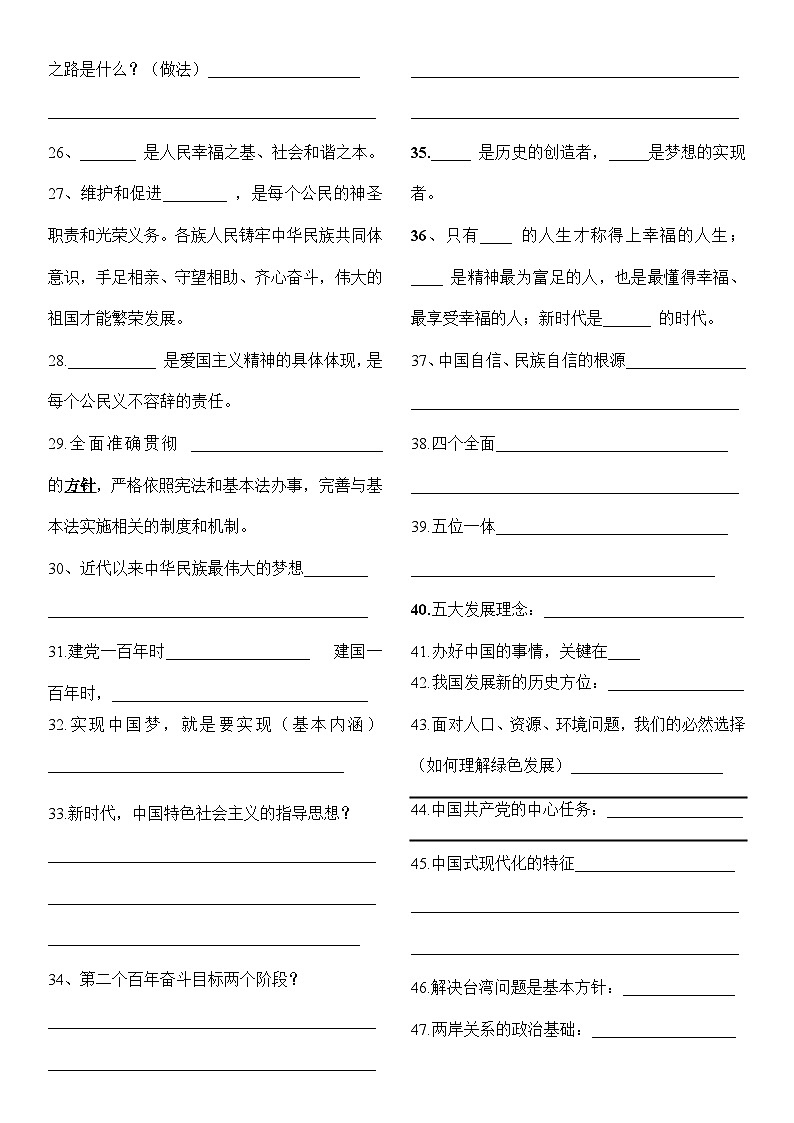 之路是什么？（做法）___________________
_________________________________________
26、_______ 是人民幸福之基、社会和谐之本。
27、维护和促进________ ，是每个公民的神圣
职责和光荣义务。各族人民铸牢中华民族共同体
意识，手足相亲、守望相助、齐心奋斗，伟大的
祖国才能繁荣发展。
28.___________ 是爱国主义精神的具体体现，是
每个公民义不容辞的责任。
29.全面准确贯彻 ________________________
的方针，严格依照宪法和基本法办事，完善与基
本法实施相关的制度和机制。
30、近代以来中华民族最伟大的梦想________
________________________________________
31.建党一百年时__________________ 建国一
百年时，________________________________
32.实现中国梦，就是要实现（基本内涵）
_____________________________________
33.新时代，中国特色社会主义的指导思想？
_________________________________________
_________________________________________
_______________________________________
34、第二个百年奋斗目标两个阶段？
_________________________________________
_________________________________________
_________________________________________
_________________________________________
35._____ 是历史的创造者，_____是梦想的实现
者。
36、只有____ 的人生才称得上幸福的人生；
____ 是精神最为富足的人，也是最懂得幸福、
最享受幸福的人；新时代是______ 的时代。
37、中国自信、民族自信的根源_______________
_________________________________________
38.四个全面_____________________________
_________________________________________
39.五位一体_____________________________
______________________________________
40.五大发展理念：_________________________
41.办好中国的事情，关键在____
42.我国发展新的历史方位：_________________
43.面对人口、资源、环境问题，我们的必然选择
（如何理解绿色发展）___________________
44.中国共产党的中心任务：_________________
45.中国式现代化的特征____________________
_________________________________________
_________________________________________
46.解决台湾问题是基本方针：______________
47.两岸关系的政治基础：__________________